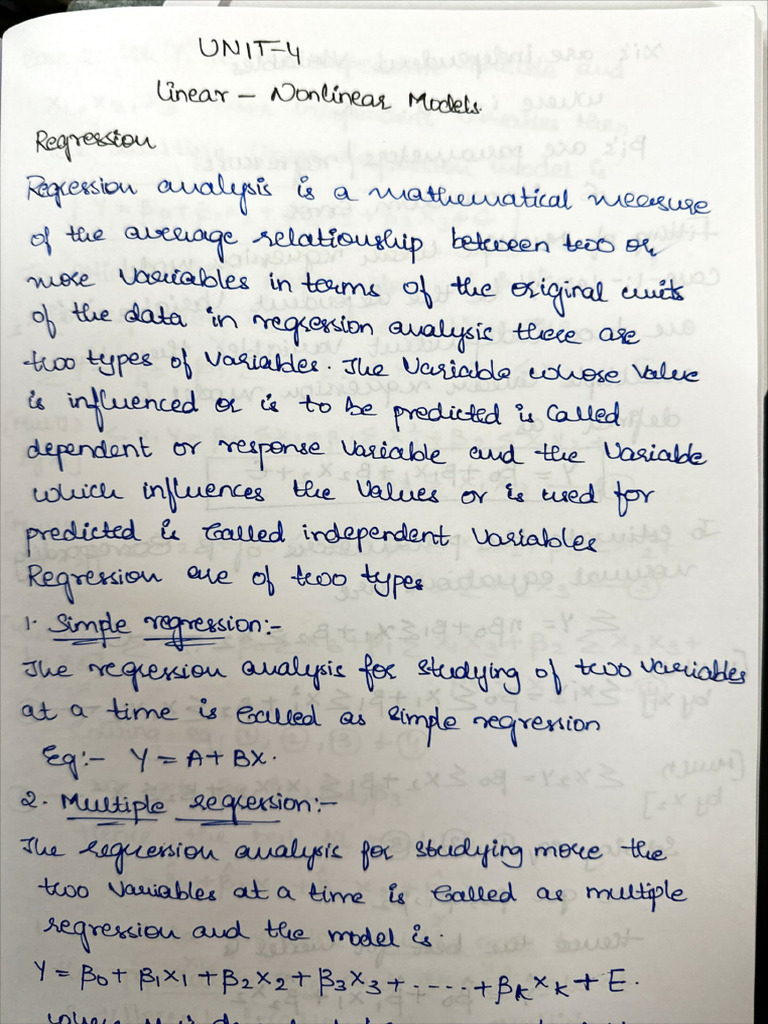 UNIT-4
Linear - Nonlinear Models.
Regression
Regression analysis is a mathematical measure
of the average relationship between two or
more variables in terms of the original units
of the data in regression analysis there are
two types of variables. The variable whose value
is influenced or is to be predicted is called
dependent or response variable and the variable
which influences the values or is used for
predicted is called independent variables
Regression are of two types
1. Simple regression:-
The regression analysis for studying of two variables
at a time is called as simple regression
Eg:- Y = A + BX.
2. Multiple regression:-
The regression analysis for studying more the
two variables at a time is called as multiple
regression and the model is.
Y = β0 + β1x1 + β2x2 + β3x3 + ..... + βkxk + E.